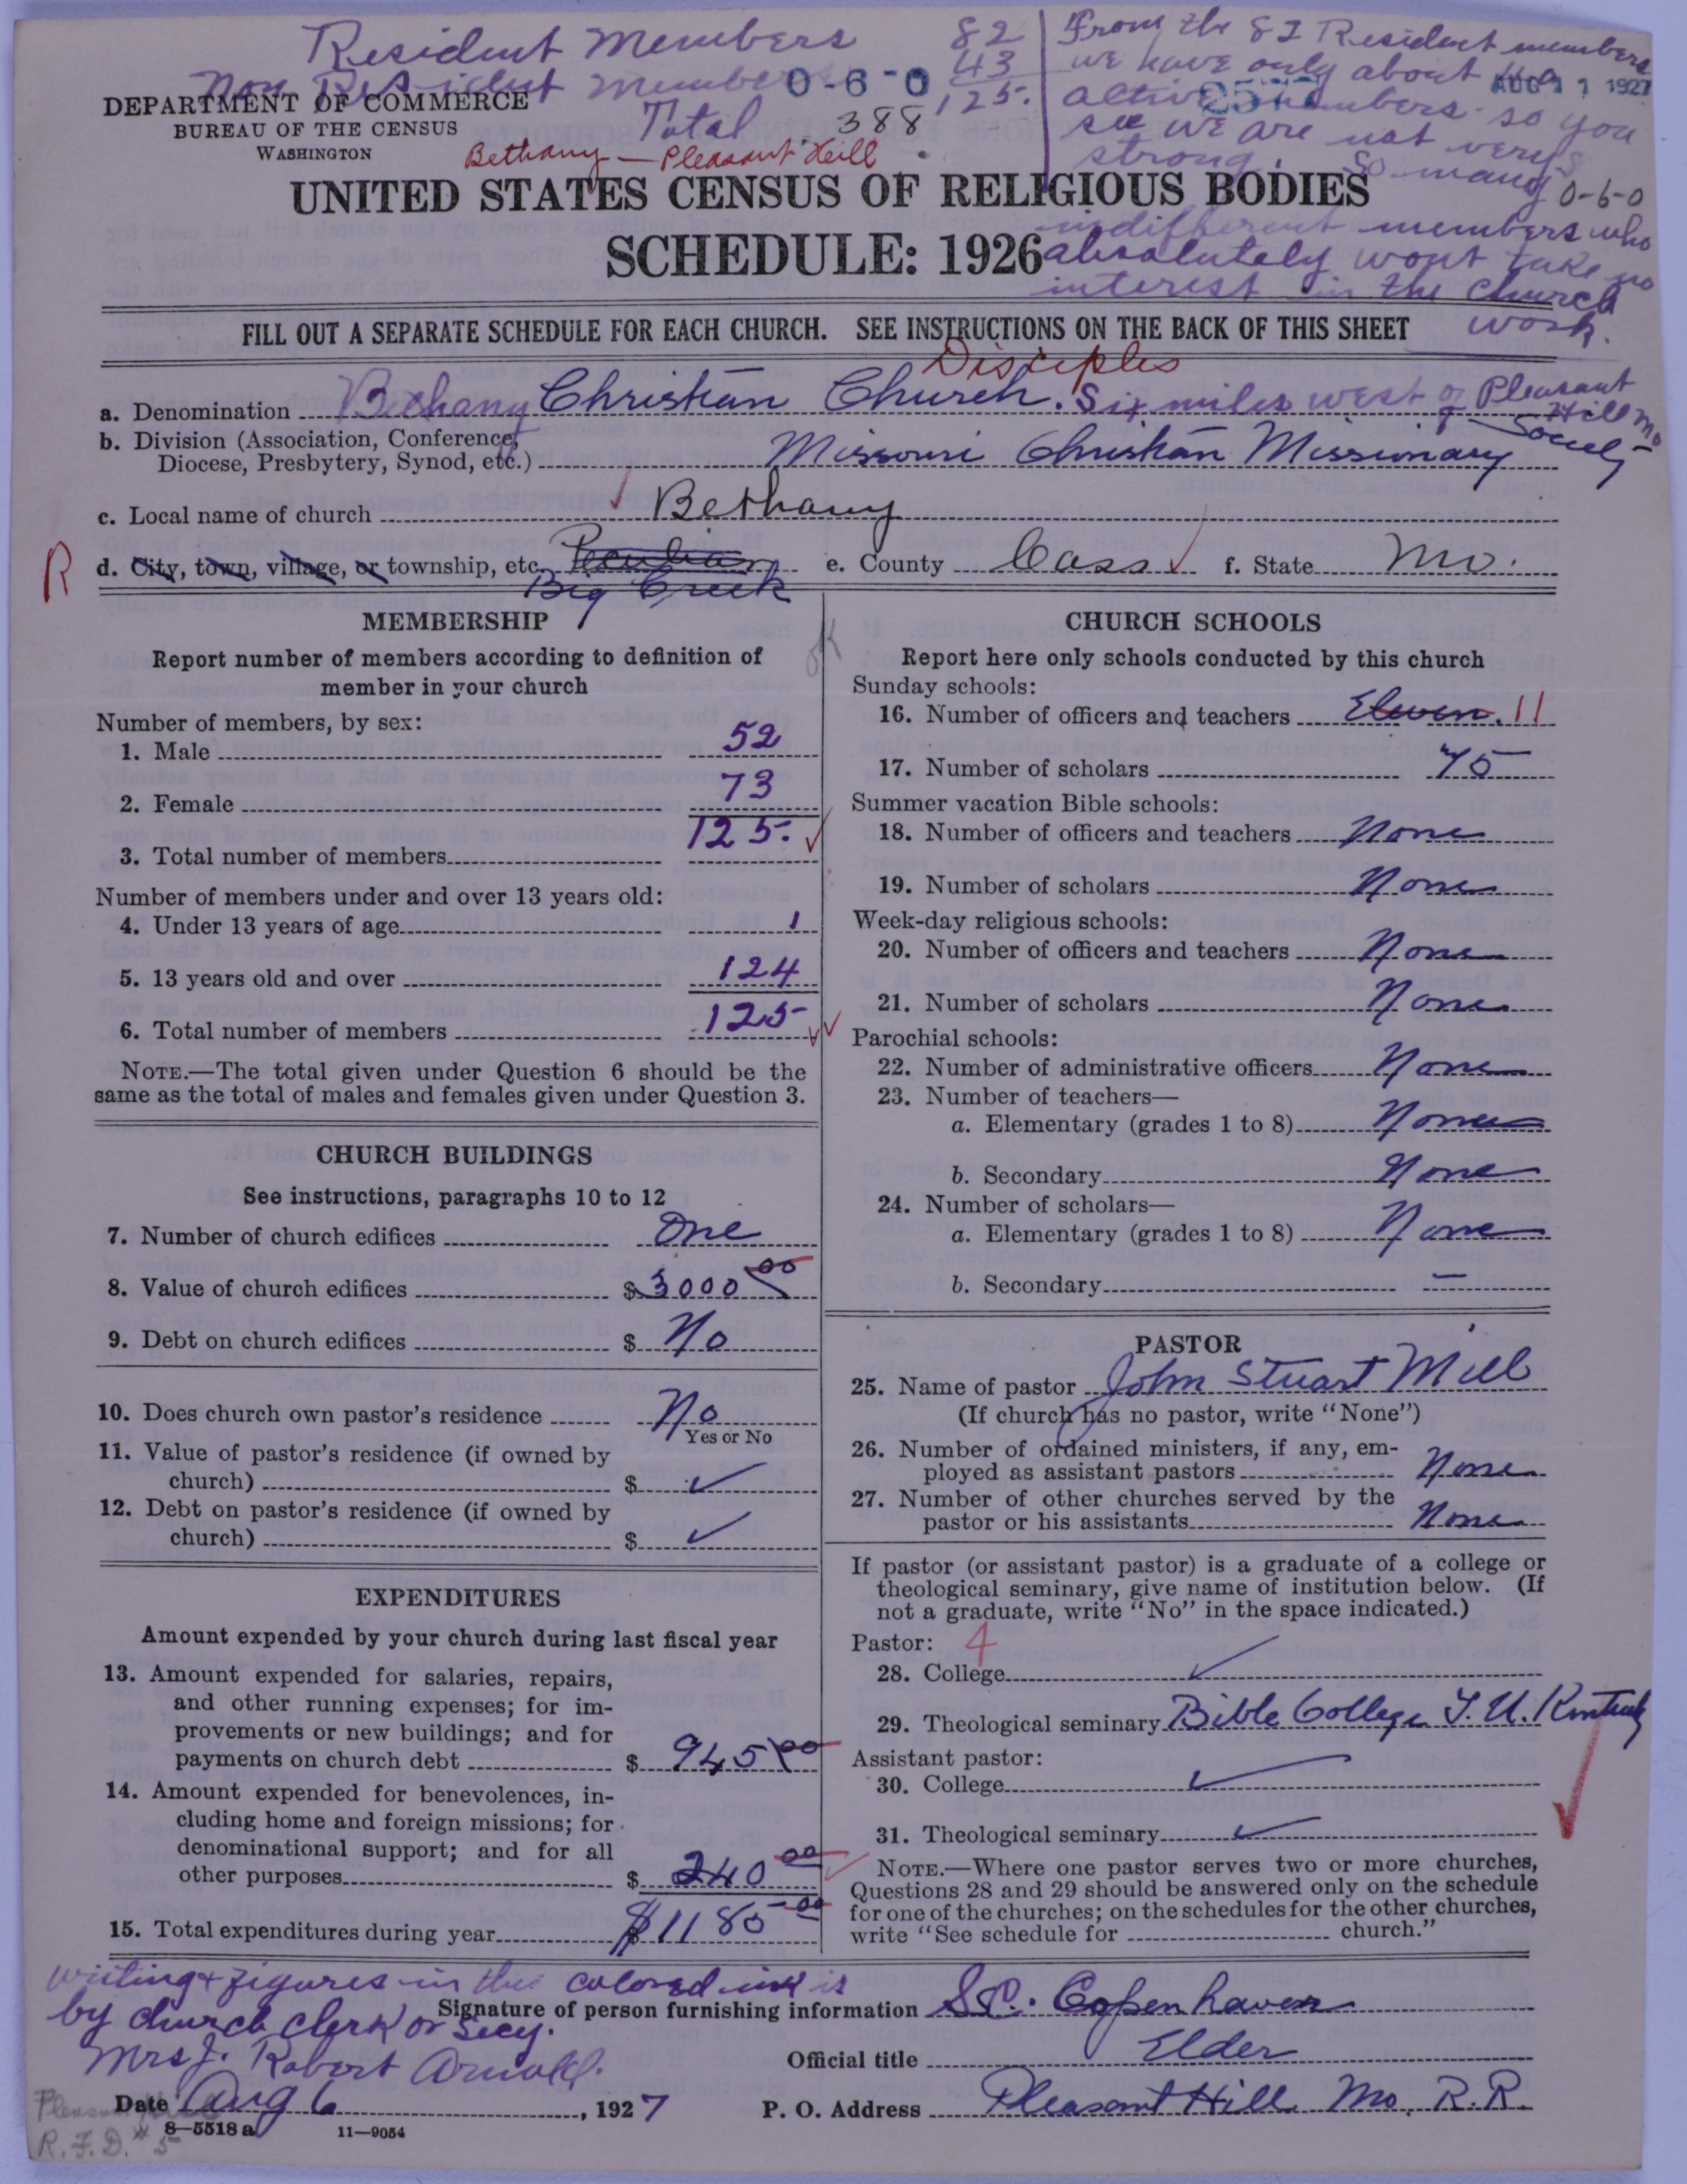 Resident Members 82
Non Resident Members 43
Total 125.
388
0-6-0
From the 82 Resident members
we have only about
active members. so you
see we are not very
strong. So many
indifferent members who
absolutely wont take no
interest in the Church
work.
AUG 11 1927
0-6-0
DEPARTMENT OF COMMERCE
BUREAU OF THE CENSUS
WASHINGTON
Bethany — Pleasant Hill
UNITED STATES CENSUS OF RELIGIOUS BODIES
SCHEDULE: 1926
FILL OUT A SEPARATE SCHEDULE FOR EACH CHURCH. SEE INSTRUCTIONS ON THE BACK OF THIS SHEET
Disciples
a. Denomination Bethany Christian Church. Six miles west of Pleasant Hill Mo
b. Division (Association, Conference,
Diocese, Presbytery, Synod, etc.) Missouri Christian Missionary Society
c. Local name of church Bethany
R
d. City, town, village, or township, etc. Peculiar e. County Cass f. State Mo.
Big Creek
MEMBERSHIP
Report number of members according to definition of
member in your church
Number of members, by sex:
1. Male 52
2. Female 73
3. Total number of members 125.
Number of members under and over 13 years old:
4. Under 13 years of age 1
5. 13 years old and over 124
6. Total number of members 125
NOTE.—The total given under Question 6 should be the
same as the total of males and females given under Question 3.
CHURCH BUILDINGS
See instructions, paragraphs 10 to 12
7. Number of church edifices One
8. Value of church edifices $ 3000 00
9. Debt on church edifices $ No
10. Does church own pastor's residence No
Yes or No
11. Value of pastor's residence (if owned by
church) $ ✓
12. Debt on pastor's residence (if owned by
church) $ ✓
EXPENDITURES
Amount expended by your church during last fiscal year
13. Amount expended for salaries, repairs,
and other running expenses; for im-
provements or new buildings; and for
payments on church debt $ 945 00
14. Amount expended for benevolences, in-
cluding home and foreign missions; for
denominational support; and for all
other purposes $ 240 00
15. Total expenditures during year $ 1185 00
ok
CHURCH SCHOOLS
Report here only schools conducted by this church
Sunday schools:
16. Number of officers and teachers Eleven. 11
17. Number of scholars 75
Summer vacation Bible schools:
18. Number of officers and teachers None
19. Number of scholars None
Week-day religious schools:
20. Number of officers and teachers None
21. Number of scholars None
Parochial schools:
22. Number of administrative officers None
23. Number of teachers—
a. Elementary (grades 1 to 8) None
b. Secondary None
24. Number of scholars—
a. Elementary (grades 1 to 8) None
b. Secondary —
PASTOR
25. Name of pastor John Stuart Mill
(If church has no pastor, write "None")
26. Number of ordained ministers, if any, em-
ployed as assistant pastors None
27. Number of other churches served by the
pastor or his assistants None
If pastor (or assistant pastor) is a graduate of a college or
theological seminary, give name of institution below. (If
not a graduate, write "No" in the space indicated.)
Pastor: 4
28. College ✓
29. Theological seminary Bible College T. U. Kentucky
Assistant pastor:
30. College ✓
31. Theological seminary ✓
NOTE.—Where one pastor serves two or more churches,
Questions 28 and 29 should be answered only on the schedule
for one of the churches; on the schedules for the other churches,
write "See schedule for church."
writing & figures in this colored ink is
by church clerk or Secy.
Mrs J. Robert Arnold.
Signature of person furnishing information S.P. Copenhaver
Official title Elder
Date Aug 6, 1927 P. O. Address Pleasant Hill Mo. R.R.
8—5518 a 11—9054
Pleasant Hill
R.F.D. # 5